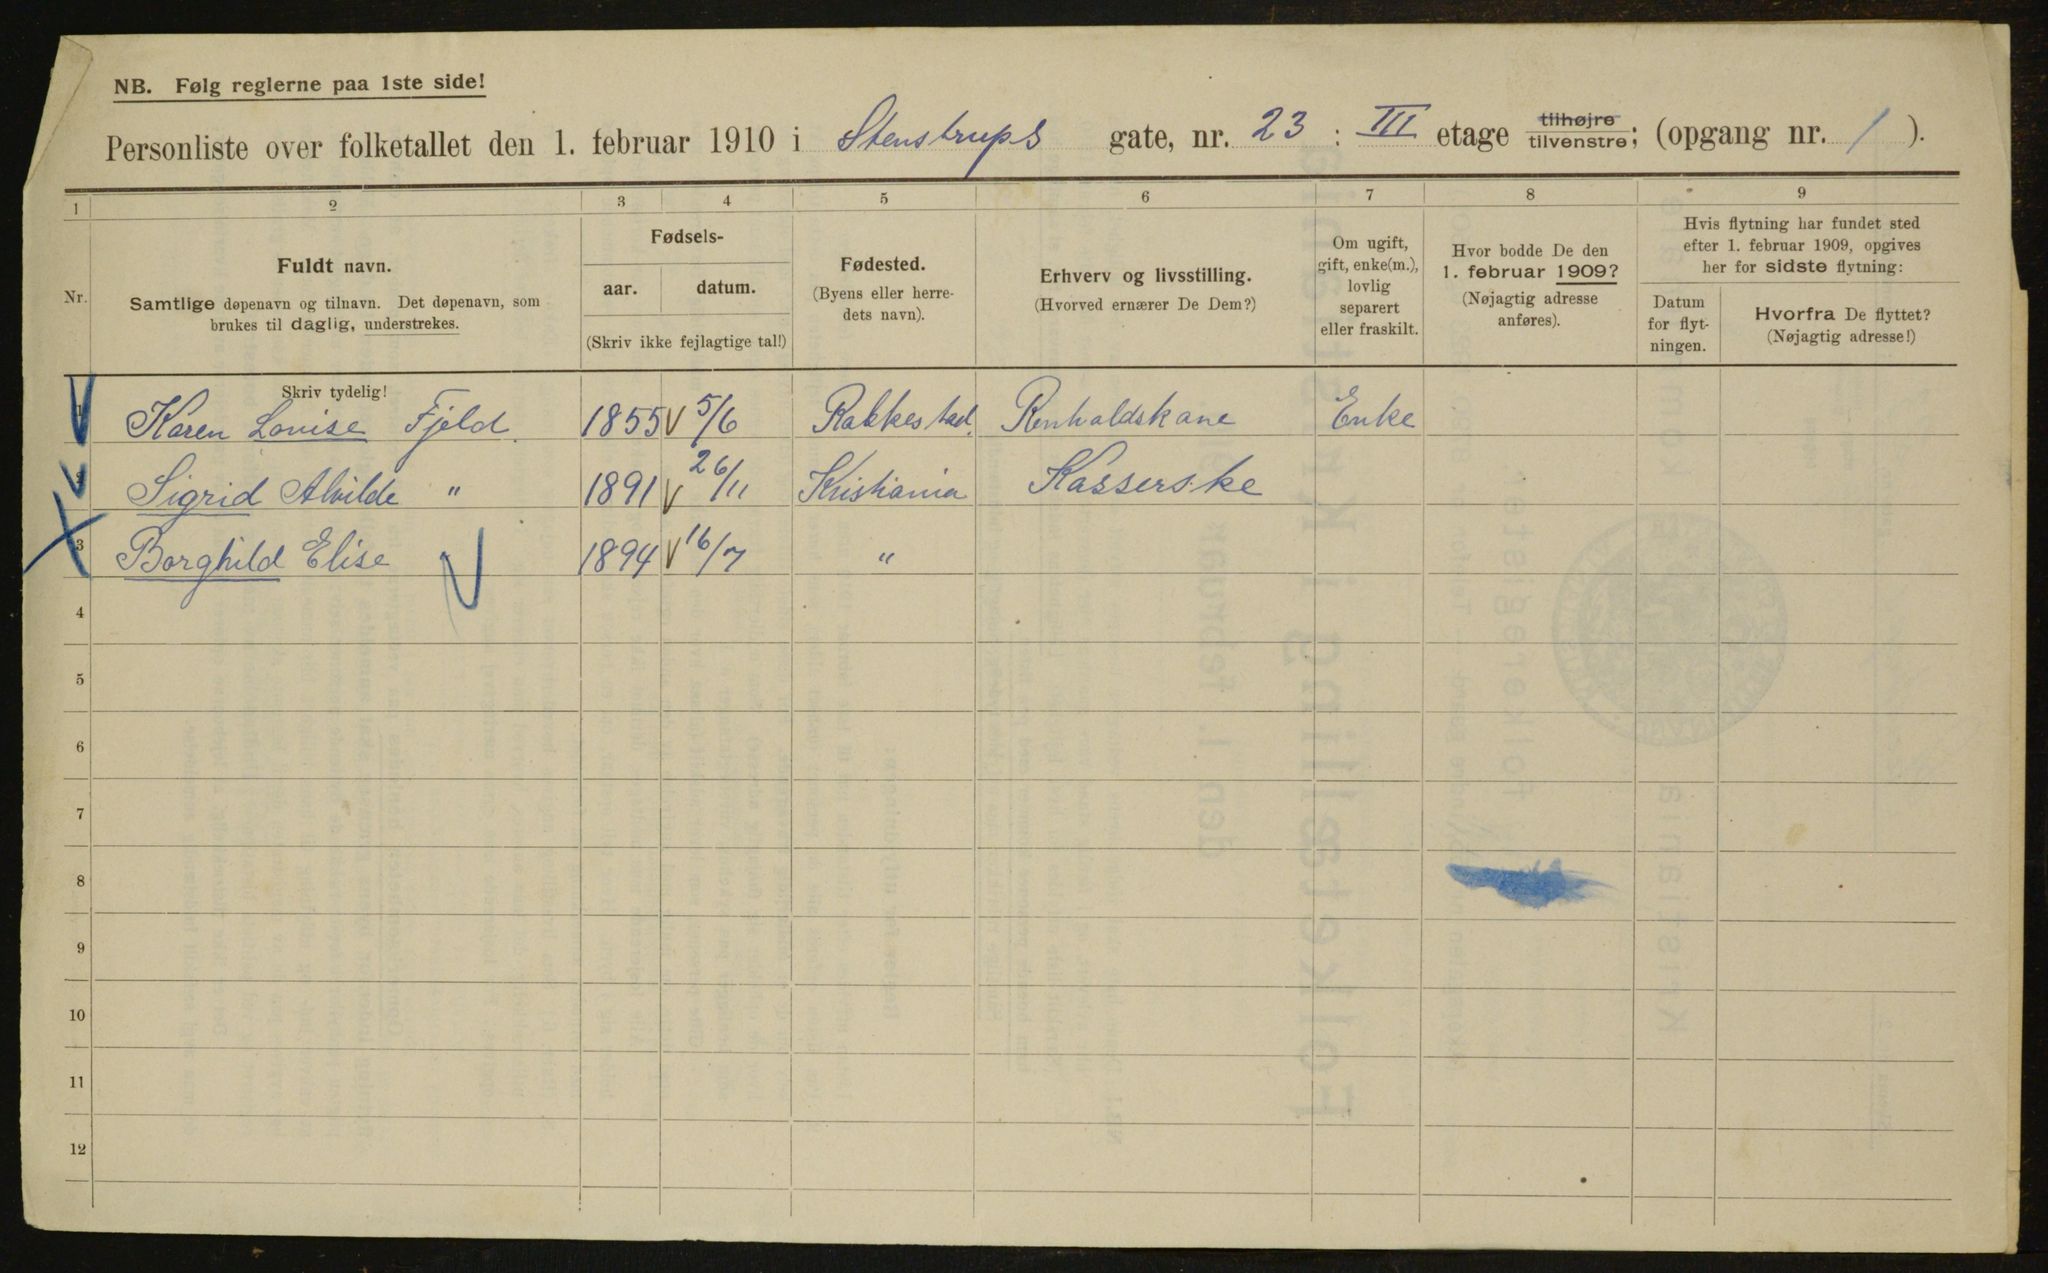 NB. Følg reglerne paa 1ste side!
Personliste over folketallet den 1. februar 1910 i Stenstrups gate, nr. 23 : III etage tilhøjre/tilvenstre; (opgang nr. 1).
1 2 3 4 5 6 7 8 9
Nr.
Fuldt navn.
Samtlige døpenavn og tilnavn. Det døpenavn, som
brukes til daglig, understrekes.
Fødsels-
aar. datum.
(Skriv ikke fejlagtige tal!)
Fødested.
(Byens eller herre-
dets navn).
Erhverv og livsstilling.
(Hvorved ernærer De Dem?)
Om ugift,
gift, enke(m.),
lovlig
separert
eller fraskilt.
Hvor bodde De den
1. februar 1909?
(Nøjagtig adresse
anføres).
Hvis flytning har fundet sted
efter 1. februar 1909, opgives
her for sidste flytning:
Datum
for flyt-
ningen.
Hvorfra De flyttet?
(Nøjagtig adresse!)
Skriv tydelig!
1 Karen Louise Fjeld. 1855 5/6 Rakkestad. Renholdskone Enke
2 Sigrid Alvilde " 1891 26/11 Kristiania Kasserske
3 Borghild Elise 1894 16/7 "
4
5
6
7
8
9
10
11
12